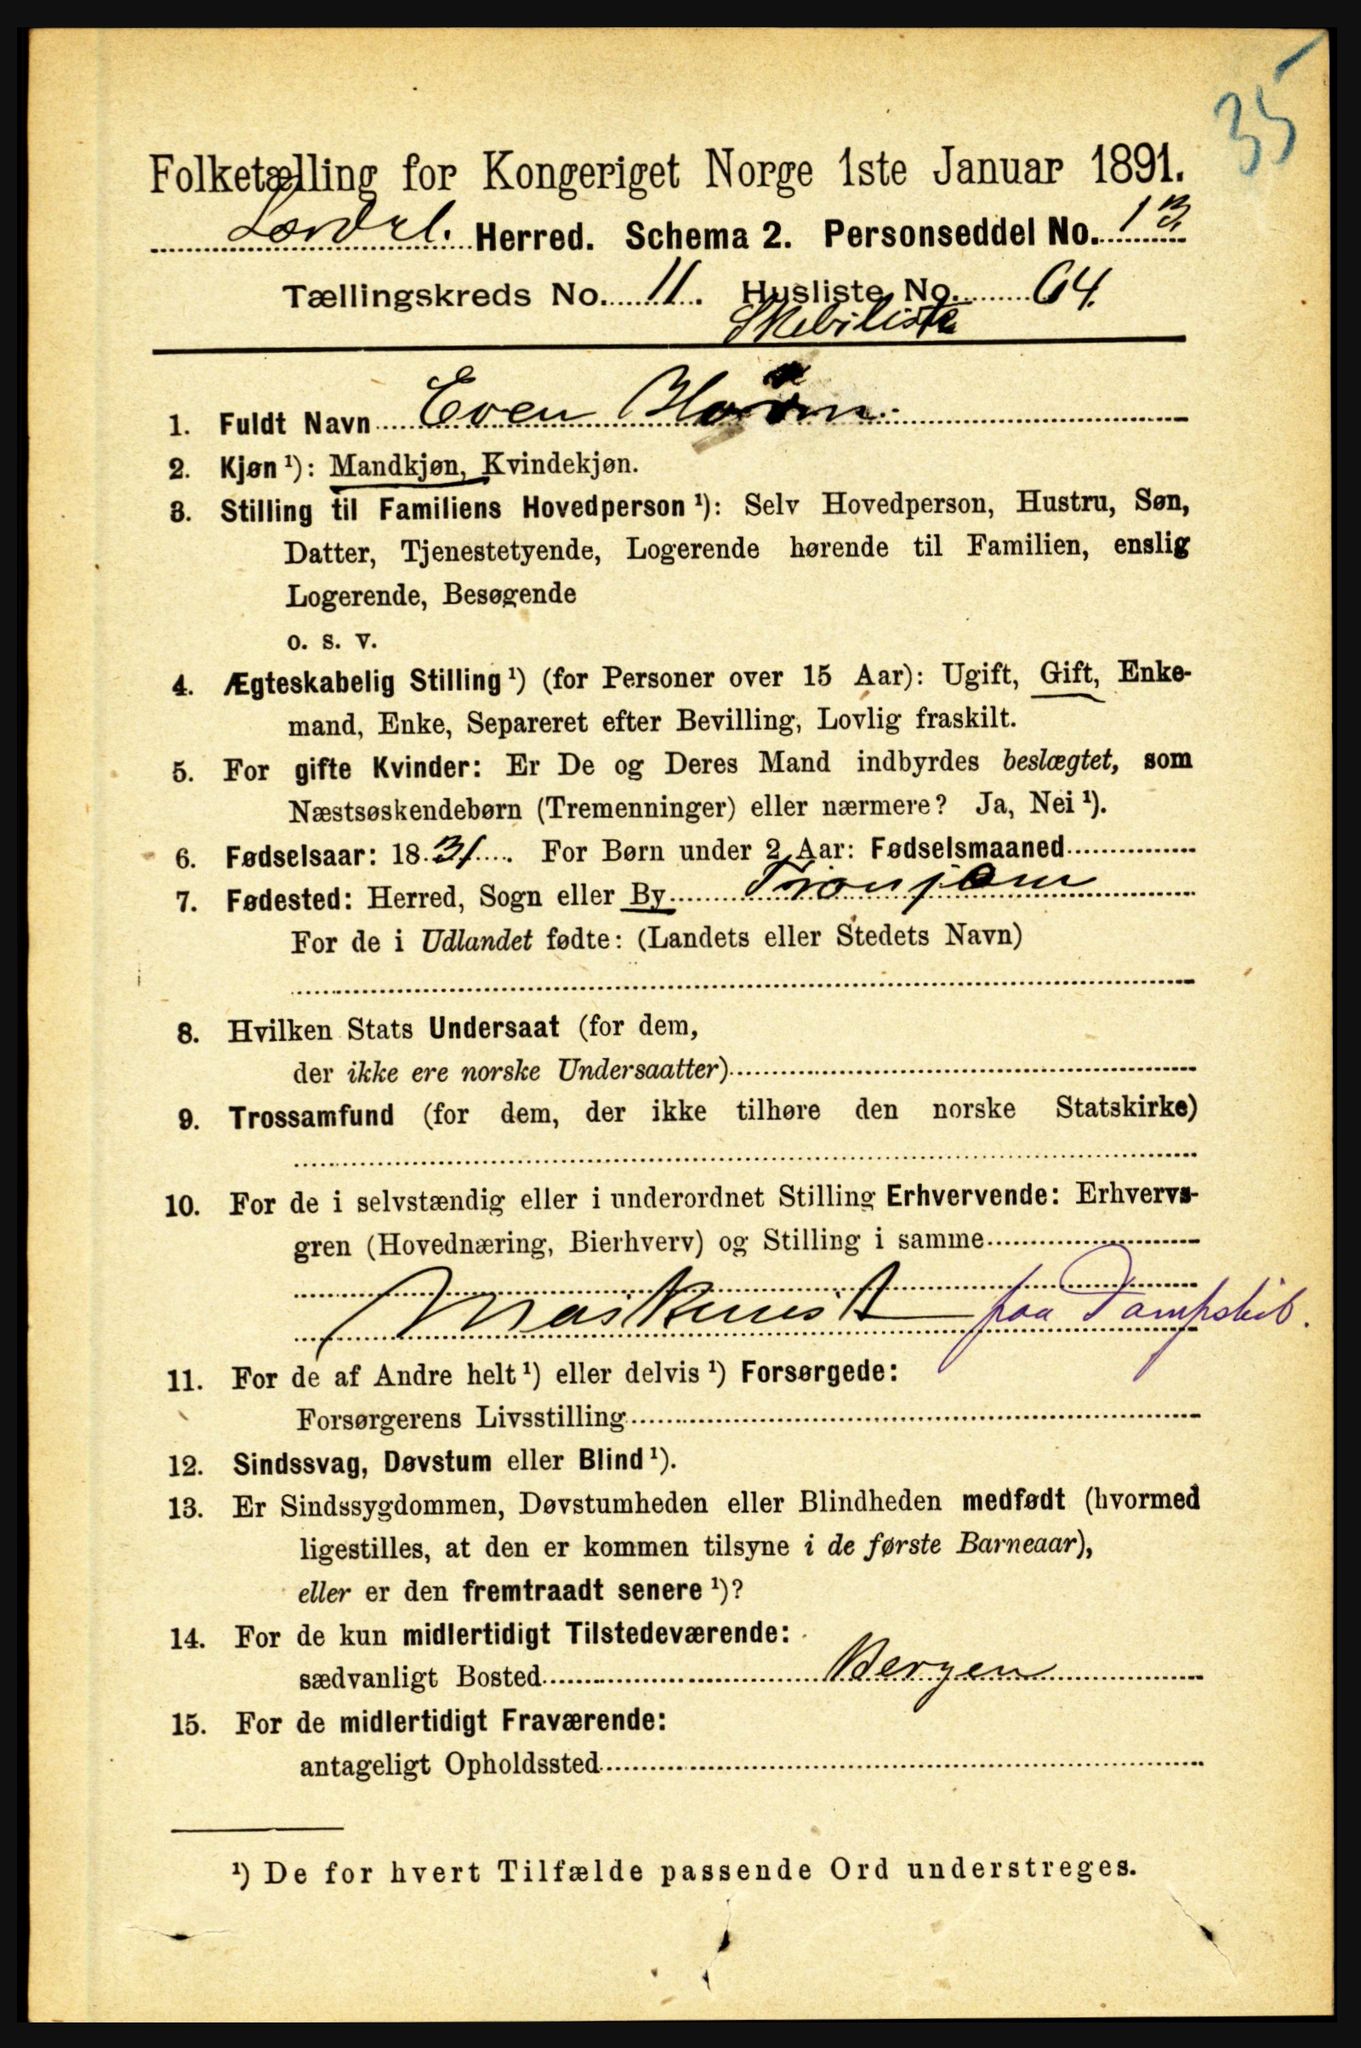 35
Folketælling for Kongeriget Norge 1ste Januar 1891.
Lærdal. Herred. Schema 2. Personseddel No. 13
Tællingskreds No. 11. Husliste No. 64.
Skibsliste
1. Fuldt Navn Even
2. Kjøn ¹): Mandkjøn, Kvindekjøn.
3. Stilling til Familiens Hovedperson ¹): Selv Hovedperson, Hustru, Søn,
Datter, Tjenestetyende, Logerende hørende til Familien, enslig
Logerende, Besøgende
o. s. v.
4. Ægteskabelig Stilling ¹) (for Personer over 15 Aar): Ugift, Gift, Enke-
mand, Enke, Separeret efter Bevilling, Lovlig fraskilt.
5. For gifte Kvinder: Er De og Deres Mand indbyrdes beslægtet, som
Næstsøskendebørn (Tremenninger) eller nærmere? Ja, Nei ¹).
6. Fødselsaar: 1831. For Børn under 2 Aar: Fødselsmaaned
7. Fødested: Herred, Sogn eller By Tronjem
For de i Udlandet fødte: (Landets eller Stedets Navn)
8. Hvilken Stats Undersaat (for dem,
der ikke ere norske Undersaatter)
9. Trossamfund (for dem, der ikke tilhøre den norske Statskirke)
10. For de i selvstændig eller i underordnet Stilling Erhvervende: Erhvervs-
gren (Hovednæring, Bierhverv) og Stilling i samme
Maskinist paa Dampskib.
11. For de af Andre helt ¹) eller delvis ¹) Forsørgede:
Forsørgerens Livsstilling
12. Sindssvag, Døvstum eller Blind ¹).
13. Er Sindssygdommen, Døvstumheden eller Blindheden medfødt (hvormed
ligestilles, at den er kommen tilsyne i de første Barneaar),
eller er den fremtraadt senere ¹)?
14. For de kun midlertidigt Tilstedeværende:
sædvanligt Bosted Bergen
15. For de midlertidigt Fraværende:
antageligt Opholdssted
¹) De for hvert Tilfælde passende Ord understreges.